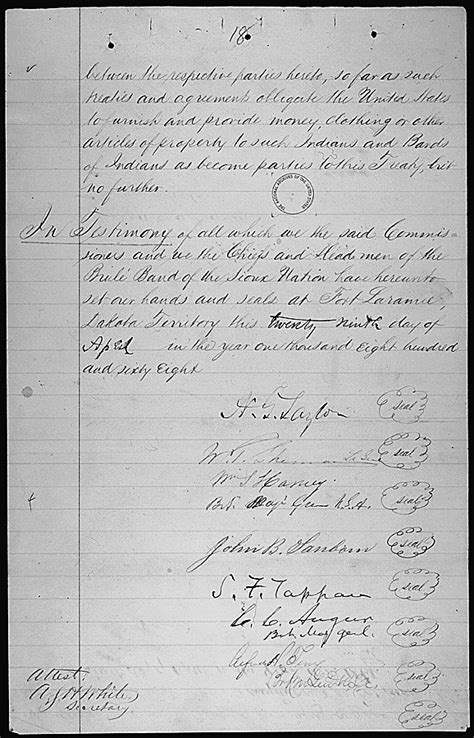 18
between the respective parties hereto, so far as such
treaties and agreements obligate the United States
to furnish and provide money, clothing or other
articles of property to such Indians and Bands
of Indians as become parties to this Treaty, but
no further.
In Testimony of all which we the said Commis-
sioners and we the Chiefs and Head men of the
Brulé Band of the Sioux Nation have hereunto
set our hands and seals at Fort Laramie,
Dakota Territory this twenty ninth day of
April in the year one thousand Eight hundred
and sixty Eight
N. G. Taylor seal
W. T. Sherman Lt Genl seal
Wm S Harney
Bvt Maj Gen U.S.A. seal
John B. Sanborn seal
S. F. Tappan seal
C. C. Augur
Bvt Maj Genl. seal
Alfred H. Terry
Bvt seal
Attest,
A. S. H. White
Secretary.
seal